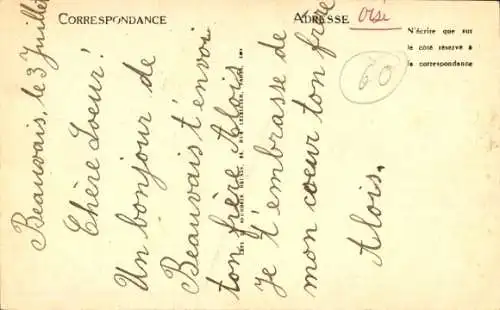 CORRESPONDANCE
ADRESSE
Oise
N'écrire que sur
le coté réservé à
la correspondance
60
Beauvais, le 3 Juillet
Chère Soeur!
Un bonjour de
Beauvais t'envoi
ton frère Alois
Je t'embrasse de
mon coeur ton frère
Alois.